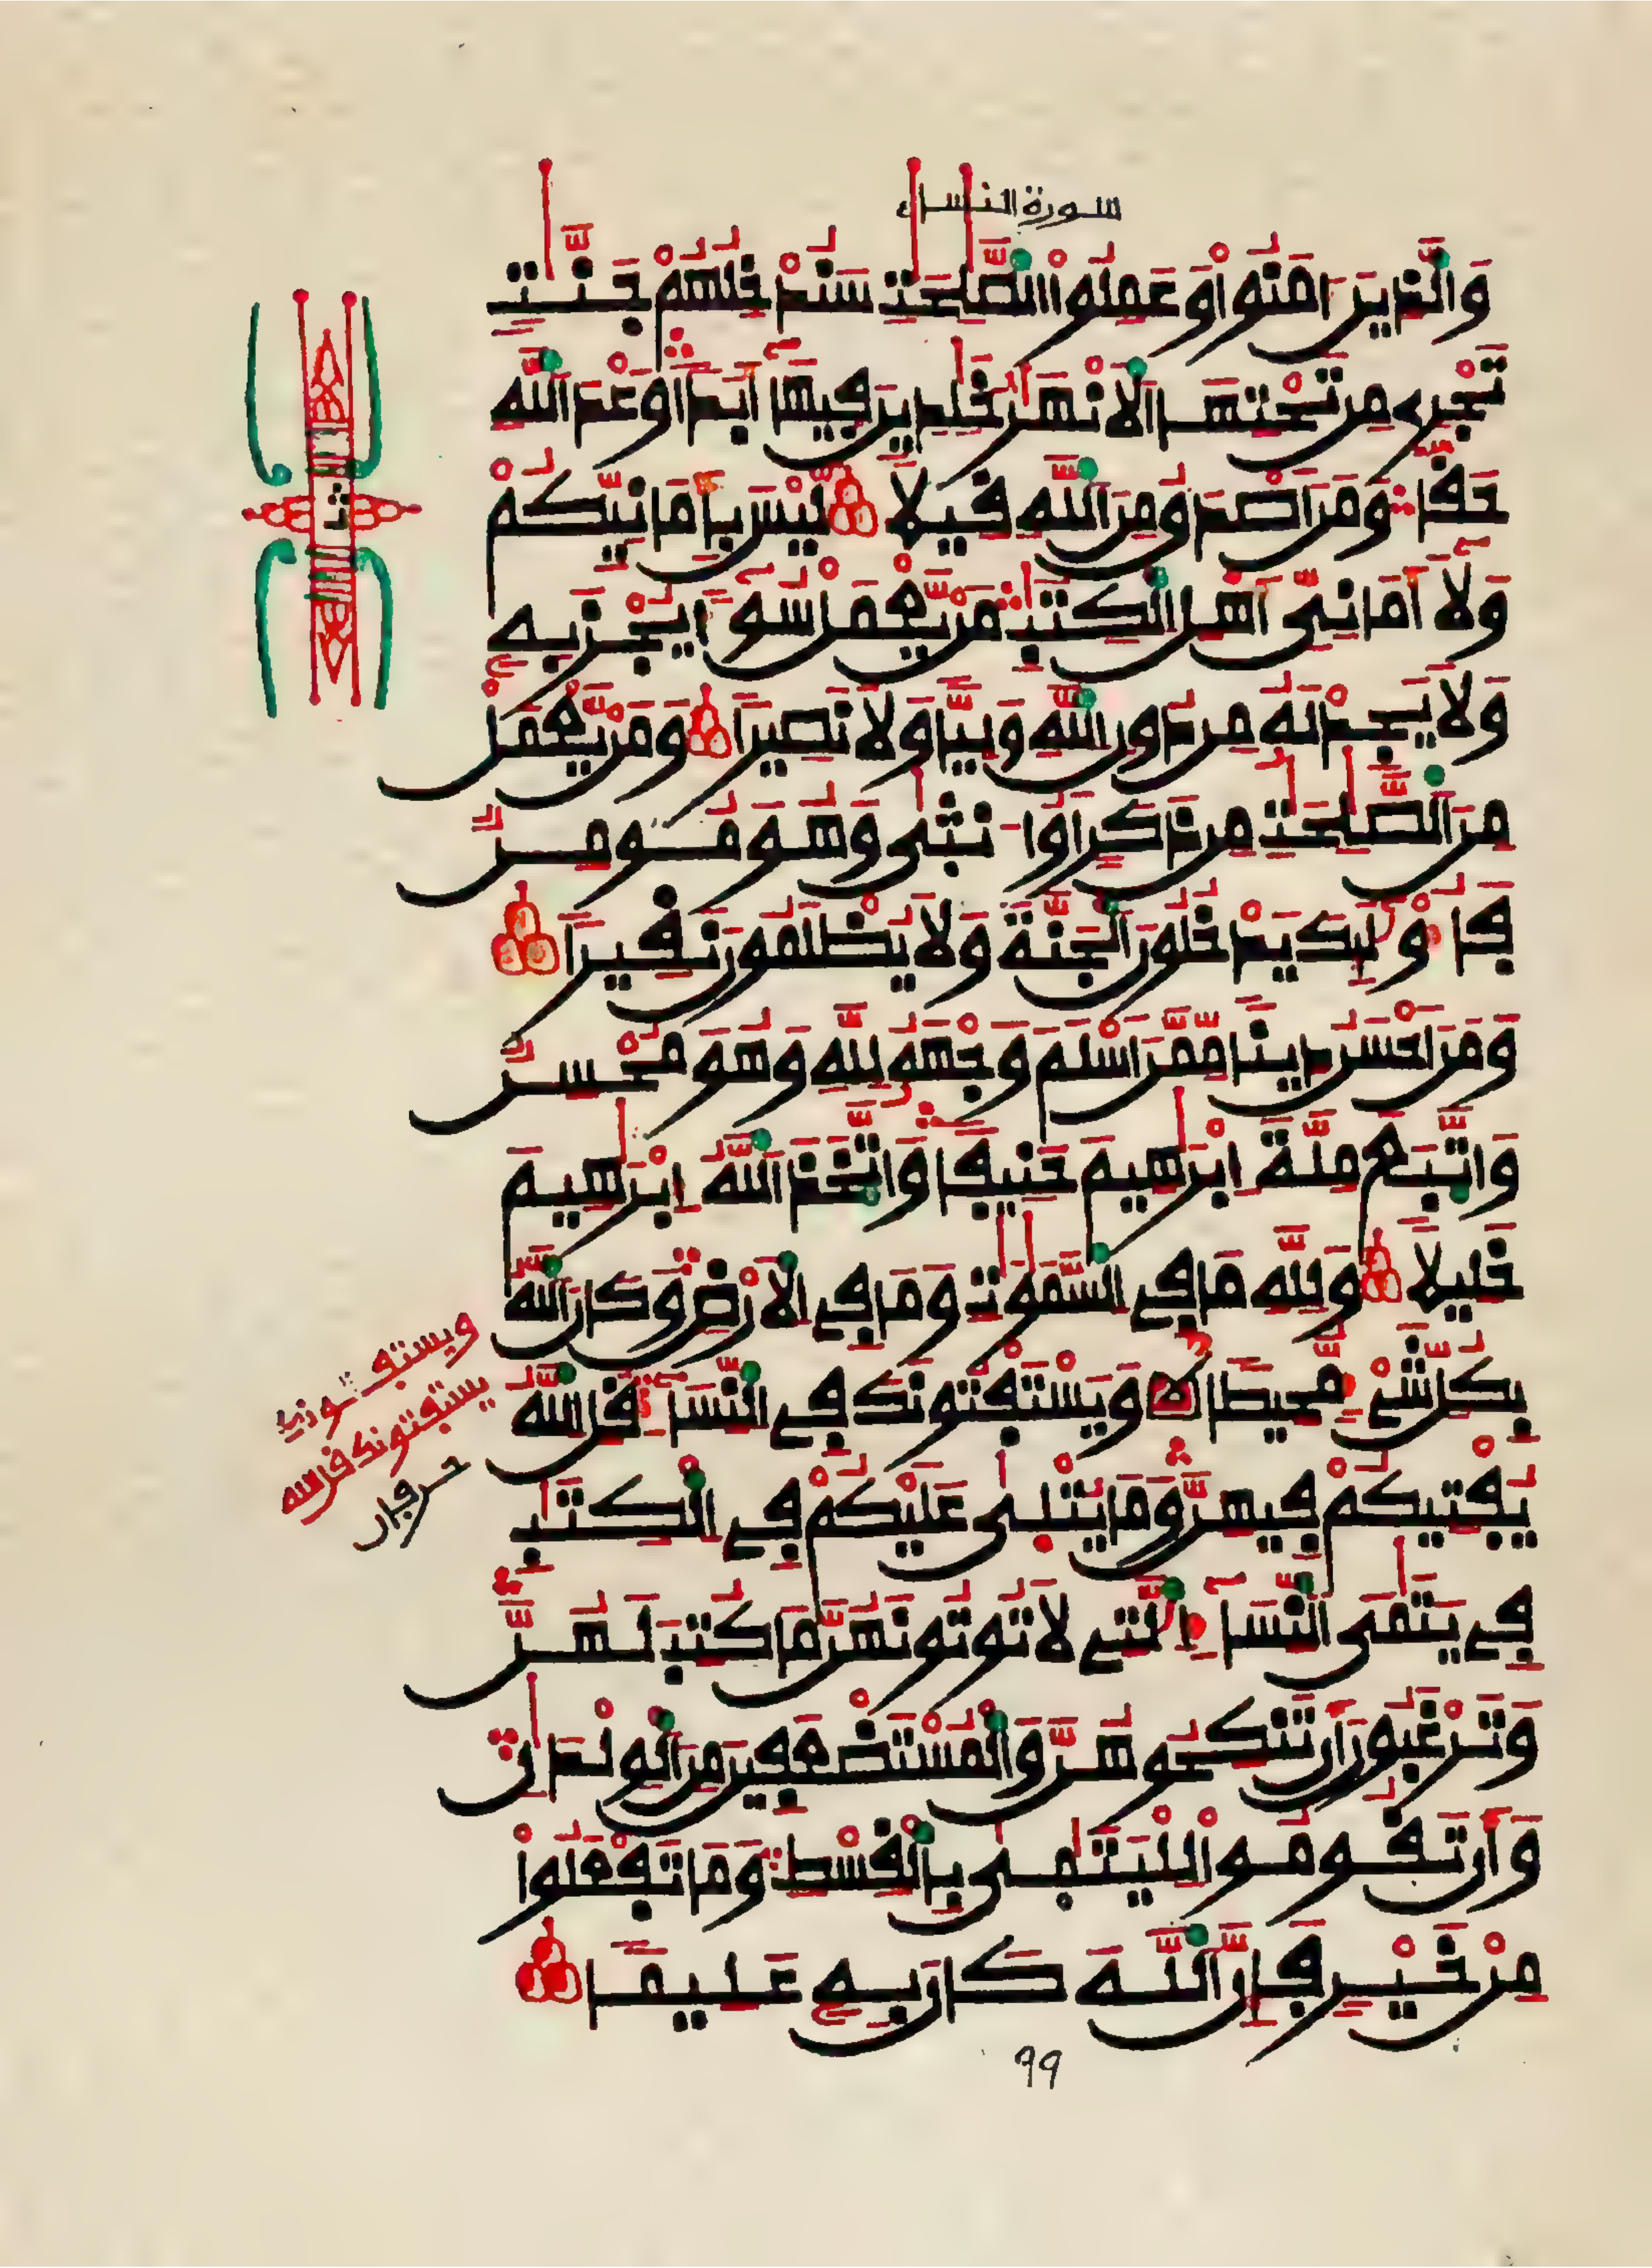 سورة النساء
وَالَّذِينَ ءَامَنُواْ وَعَمِلُواْ الصَّٰلِحَٰتِ سَنُدْخِلُهُمْ جَنَّٰتٖ
تَجْرِے مِن تَحْتِهَا اَلَانْهَٰرُ خَٰلِدِينَ فِيهَآ أَبَداٗ وَعْدَ اَللَّهِ
حَقّاٗ وَمَنَ اَصْدَقُ مِنَ اَللَّهِ قِيلاٗ لَّيْسَ بِأَمَانِيِّكُمْ
وَلَآ أَمَانِيِّ أَهْلِ اِلْكِتَٰبِ مَنْ يَّعْمَلْ سُوٓءاٗ يُجْزَ بِهِۦ
وَلَا يَجِدْ لَهُۥ مِن دُونِ اِللَّهِ وَلِيّاٗ وَلَا نَصِيراٗ وَمَنْ يَّعْمَلْ
مِنَ اَلصَّٰلِحَٰتِ مِن ذَكَرٍ اَوُ ا۟نثۭىٰ وَهُوَ مُومِنٞ
فَأُوْلَٰٓئِكَ يَدْخُلُونَ اَلْجَنَّةَ وَلَا يُظْلَمُونَ نَقِيراٗ
وَمَنَ اَحْسَنُ دِيناٗ مِّمَّنَ اَسْلَمَ وَجْهَهُۥ لِلَّهِ وَهُوَ مُحْسِنٞ
وَاتَّبَعَ مِلَّةَ إِبْرَٰهِيمَ حَنِيفاٗ وَاتَّخَذَ اَللَّهُ إِبْرَٰهِيمَ
خَلِيلاٗ وَلِلَّهِ مَا فِے اِلسَّمَٰوَٰتِ وَمَا فِے اِلَارْضِ وَكَانَ اَللَّهُ
بِكُلِّ شَےْءٖ مُّحِيطاٗ وَيَسْتَفْتُونَكَ فِے اِلنِّسَآءِ قُلِ اِللَّهُ
يُفْتِيكُمْ فِيهِنَّ وَمَا يُتْلَىٰ عَلَيْكُمْ فِے اِلْكِتَٰبِ
فِے يَتَٰمَى اَلنِّسَآءِ اِلَّٰتِے لَا تُوتُونَهُنَّ مَا كُتِبَ لَهُنَّ
وَتَرْغَبُونَ أَن تَنكِحُوهُنَّ وَالْمُسْتَضْعَفِينَ مِنَ اَلْوِلْدَٰنِ
وَأَن تَقُومُواْ لِلْيَتَٰمَىٰ بِالْقِسْطِ وَمَا تَفْعَلُواْ
مِنْ خَيْرٖ فَإِنَّ اَللَّهَ كَانَ بِهِۦ عَلِيماٗ
ويستفتونك
يستفتونك قل الله
حرفان
99